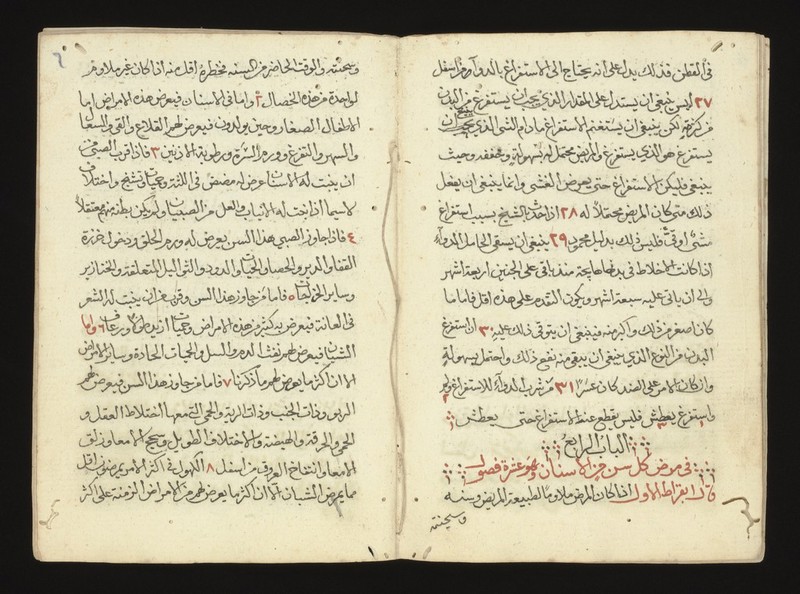 في القطن فذلك يدل على انه يحتاج الى الاستفراغ بالدوآ من اسفل
٢٧ ليس ينبغي ان يستدل على المقدار الذي يجب ان يستفرغ من البدن
من كثرته لكن ينبغي ان يستغنم الاستفراغ مادام الشي الذي يجب ان
يستفرغ هو الذي يستفرغ والمريض محتمل له بسهولة وخفة وحيث
ينبغي فليكن الاستفراغ حتى يعرض الغشي وانما ينبغي ان يفعل
ذلك متى كان المريض محتملاً له ٢٨ اذا حدث التشنج بسبب استفراغ
مشي او قي فليس ذلك بدليل محمود ٢٩ ينبغي ان يسقى الحامل الدوآ
اذا كانت الاخلاط في بدنها هايجة منذ ياتي على الجنين اربعة اشهر
والى ان ياتي عليه سبعة اشهر ويكون التقدم على هذه اقل فاما ما
كان اصغر من ذلك واكبر منه فينبغي ان يتوقى ذلك عليه ٣٠ ان استفرغ
البدن من النوع الذي ينبغي ان ينقى منه نفع ذلك واحتمل بسهولة
وان كان الامر على الضد كان عسرًا ٣١ من شرب الدوآء للاستفراغ
واستفرغ ولم يعطش فليس يقطع عنه الاستفراغ حتى يعطش
الباب الرابع
في مرض كل سن من الاسنان وهو عشرة فصول
قال ابقراط الاول اذا كان المرض ملاوما لطبيعة المريض وسنه
وسحنته
٦
وسحنته والوقت الحاضر من السنه فخطره اقل منه اذا كان غير ملاوم
لواحدة من هذه الخصال ٢ واما في الاسنان فيعرض هذه الامراض اما
الاطفال الصغار وحين يولدون فيعرض لهم القلاع والقي والسعال
والسهر والتفزع وورم السرة ورطوبة الاذنين ٣ فاذا قرب الصبي من
ان ينبت له الاسنان عرض له مضض في اللثة وحميات وتشنج واختلاف
لاسيما اذا نبتت له الانياب والعبل من الصبيان ولمن يكن بطنه منهم معتقلاً
٤ فاذا جاوز الصبي هذا السن يعرض له ورم الحلق ودخول خرزة
القفا والربو والحصا والحيات والدود والثواليل المتعلقة والخنازير
وساير الخراجات ٥ فاما من جاوز هذا السن وقرب من ان ينبت له الشعر
في العانة فيعرض له كثير من هذه الامراض وحميات ازيد طولا ورعاف ٦ واما
الشبان فيعرض لهم نفث الدم والسل والحميات الحادة وساير الامراض
الا ان اكثر ما يعرض لهم ما ذكرنا ٧ فاما من جاوز هذا السن فيعرض لهم
الربو وذات الجنب وذات الرية والحمى التي معها اختلاط العقل و
الحمى المحرقة والهيضة والاختلاف الطويل وسحج الامعا وزلق
الامعا وانفتاح العروق من اسفل ٨ الكهول في اكثر الامر يمرضون اقل
مما يمرض الشبان الا ان اكثر ما يعرض لهم من الامراض المزمنة على اكثر